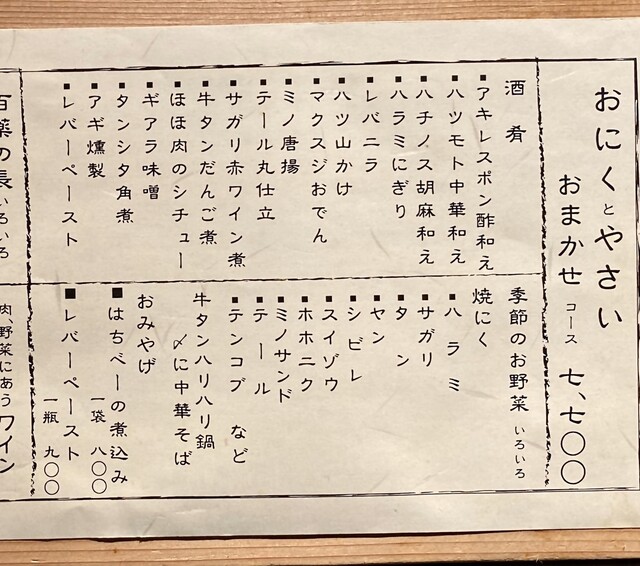 おにくとやさい
おまかせ コース 七、七〇〇
酒肴
■アキレスポン酢和え
■ハツモト中華和え
■ハチノス胡麻和え
■ハラミにぎり
■レバニラ
■ハツ山かけ
■マクスジおでん
■ミノ唐揚
■テール丸仕立
■サガリ赤ワイン煮
■牛タンだんご煮
■ほほ肉のシチュー
■ギアラ味噌
■タンシタ角煮
■アギ燻製
■レバーペースト
季節のお野菜 いろいろ
焼にく
■ハラミ
■サガリ
■タン
■ヤン
■シビレ
■スイゾウ
■ホホニク
■ミノサンド
■テール
■テンコブ など
牛タンハリハリ鍋
〆に中華そば
おみやげ
■はちべーの煮込み
一袋 八〇〇
■レバーペースト
一瓶 九〇〇
百薬の長 いろいろ
肉、野菜にあうワイン